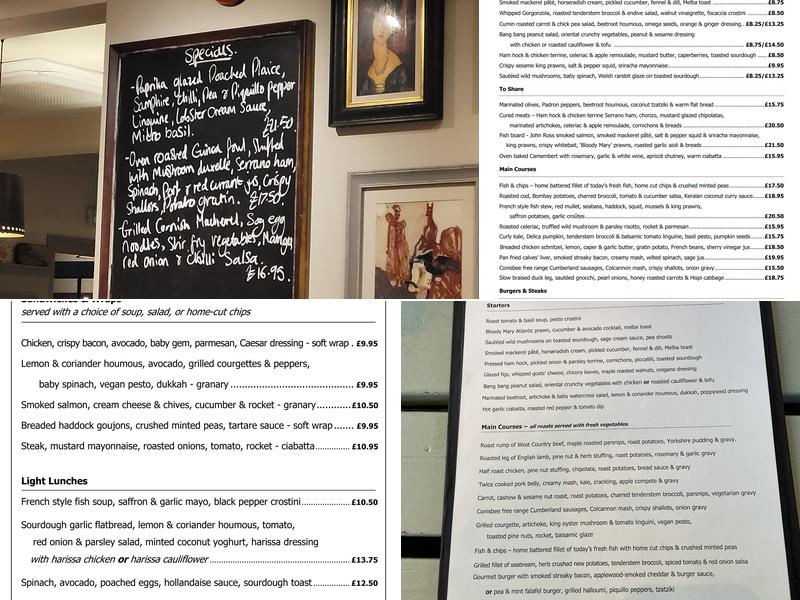 Specials
-Paprika glazed Poached Plaice,
Samphire, Chilli, Pea & Piquillo Pepper
Linguine, Lobster Cream Sauce,
Micro basil. £21.50.
-Oven roasted Guinea Fowl, Stuffed
with Mushroom duxelle, Serrano ham,
Spinach, Port & redcurrant jus, Crispy
Shallots, Potato gratin. £17.50
-Grilled Cornish Mackerel, Soy egg
noodles, Stir fry vegetables, Mango,
red onion & chilli Salsa.
£16.95.
Smoked mackerel pâté, horseradish cream, pickled cucumber, fennel & dill, Melba toast £8.75
Whipped Gorgonzola, roasted tenderstem broccoli & endive salad, walnut vinaigrette, focaccia crostini £8.50
Cumin roasted carrot & chick pea salad, beetroot houmous, omega seeds, orange & ginger dressing.. £8.25/£13.25
Bang bang peanut salad, oriental crunchy vegetables, peanut & sesame dressing
with chicken or roasted cauliflower & tofu £8.75/£14.50
Ham hock & chicken terrine, celeriac & apple remoulade, mustard butter, caperberries, toasted sourdough £8.50
Crispy sesame king prawns, salt & pepper squid, sriracha mayonnaise £9.95
Sautéed wild mushrooms, baby spinach, Welsh rarebit glaze on toasted sourdough £8.25/£13.25
To Share
Marinated olives, Padron peppers, beetroot houmous, coconut tzatziki & warm flat bread £15.75
Cured meats – Ham hock & chicken terrine Serrano ham, chorizo, mustard glazed chipolatas,
marinated artichokes, celeriac & apple remoulade, cornichons & breads £20.50
Fish board - John Ross smoked salmon, smoked mackerel pâté, salt & pepper squid & sriracha mayonnaise,
king prawns, crispy whitebait, 'Bloody Mary' prawns, roasted garlic aioli & breads £21.50
Oven baked Camembert with rosemary, garlic & white wine, apricot chutney, warm ciabatta £15.95
Main Courses
Fish & chips – home battered fillet of today's fresh fish, home cut chips & crushed minted peas £17.50
Roasted cod, Bombay potatoes, charred broccoli, tomato & cucumber salsa, Keralan coconut curry sauce £18.95
French style fish stew, red mullet, seabass, haddock, squid, mussels & king prawns,
saffron potatoes, garlic croûtes £20.50
Roasted celeriac, truffled wild mushroom & parsley risotto, rocket & parmesan £15.95
Curly kale, Delica pumpkin, tenderstem broccoli & balsamic tomato linguine, basil pesto, pumpkin seeds £15.75
Breaded chicken schnitzel, lemon, caper & garlic butter, gratin potato, French beans, sherry vinegar jus £18.50
Pan fried calves' liver, smoked streaky bacon, creamy mash, wilted spinach, sage jus £19.95
Conisbee free range Cumberland sausages, Colcannon mash, crispy shallots, onion gravy £15.50
Slow braised duck leg, sautéed gnocchi, pearl onions, honey roasted carrots & Hispi cabbage £18.75
Burgers & Steaks
Sandwiches & Wraps
served with a choice of soup, salad, or home-cut chips
Chicken, crispy bacon, avocado, baby gem, parmesan, Caesar dressing - soft wrap . £9.95
Lemon & coriander houmous, avocado, grilled courgettes & peppers,
baby spinach, vegan pesto, dukkah - granary £9.95
Smoked salmon, cream cheese & chives, cucumber & rocket - granary £10.50
Breaded haddock goujons, crushed minted peas, tartare sauce - soft wrap £9.95
Steak, mustard mayonnaise, roasted onions, tomato, rocket - ciabatta £10.95
Light Lunches
French style fish soup, saffron & garlic mayo, black pepper crostini £10.50
Sourdough garlic flatbread, lemon & coriander houmous, tomato,
red onion & parsley salad, minted coconut yoghurt, harissa dressing
with harissa chicken or harissa cauliflower £13.75
Spinach, avocado, poached eggs, hollandaise sauce, sourdough toast £12.50
Starters
Roast tomato & basil soup, pesto crostini
Bloody Mary Atlantic prawn, cucumber & avocado cocktail, melba toast
Sautéed wild mushrooms on toasted sourdough, sage cream sauce, pea shoots
Smoked mackerel pâté, horseradish cream, pickled cucumber, fennel & dill, Melba toast
Pressed ham hock, pickled onion & parsley terrine, cornichons, piccalilli, toasted sourdough
Glazed figs, whipped goats' cheese, chicory leaves, maple roasted walnuts, oregano dressing
Bang bang peanut salad, oriental crunchy vegetables with chicken or roasted cauliflower & tofu
Marinated beetroot, artichoke & baby watercress salad, lemon & coriander houmous, dukkah, poppyseed dressing
Hot garlic ciabatta, roasted red pepper & tomato dip
Main Courses – all roasts served with fresh vegetables.
Roast rump of West Country beef, maple roasted parsnips, roast potatoes, Yorkshire pudding & gravy.
Roasted leg of English lamb, pine nut & herb stuffing, roast potatoes, rosemary & garlic gravy
Half roast chicken, pine nut stuffing, chipolata, roast potatoes, bread sauce & gravy
Twice cooked pork belly, creamy mash, kale, crackling, apple compote & gravy
Carrot, cashew & sesame nut roast, roast potatoes, charred tenderstem broccoli, parsnips, vegetarian gravy
Conisbee free range Cumberland sausages, Colcannon mash, crispy shallots, onion gravy
Grilled courgette, artichoke, king oyster mushroom & tomato linguini, vegan pesto,
toasted pine nuts, rocket, balsamic glaze
Fish & chips – home battered fillet of today's fresh fish with home cut chips & crushed minted peas
Grilled fillet of seabream, herb crushed new potatoes, tenderstem broccoli, spiced tomato & red onion salsa
Gourmet burger with smoked streaky bacon, applewood-smoked cheddar & burger sauce,
or pea & mint falafel burger, grilled halloumi, piquillo peppers, tzatziki